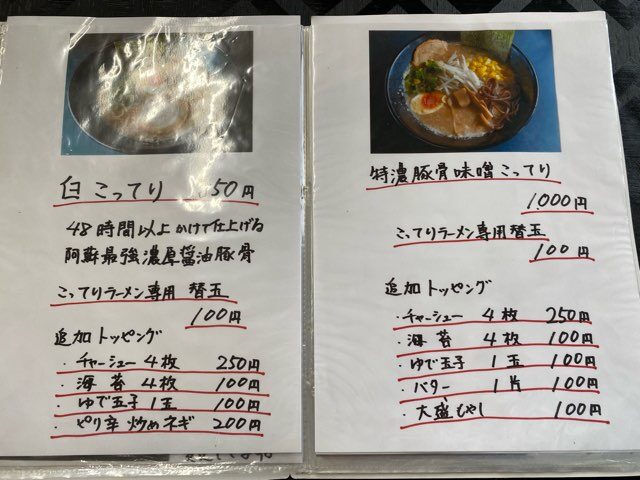 白 こってり 50円
48時間以上かけて仕上げる
阿蘇最強濃厚醤油豚骨
こってりラーメン専用 替玉
100円
追加トッピング
・チャーシュー 4枚 250円
・海苔 4枚 100円
・ゆで玉子 1玉 100円
・ピリ辛 炒めネギ 200円
特濃豚骨味噌こってり
1,000円
こってりラーメン専用替玉
100円
追加トッピング
・チャーシュー 4枚 250円
・海苔 4枚 100円
・ゆで玉子 1玉 100円
・バター 1片 100円
・大盛もやし 100円